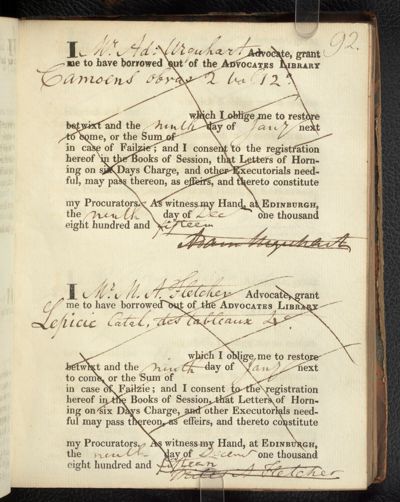 92.
I Mr. Ad: Urquhart Advocate, grant
me to have borrowed out of the ADVOCATES LIBRARY
Camoens obras 2 vol 12º
which I oblige me to restore
betwixt and the ninth day of Jany next
to come, or the Sum of
in case of Failzie; and I consent to the registration
hereof in the Books of Session, that Letters of Horn-
ing on six Days Charge, and other Executorials need-
ful, may pass thereon, as effeirs, and thereto constitute
my Procurators. As witness my Hand, at EDINBURGH,
the ninth day of Dec one thousand
eight hundred and fifteen
Adam Urquhart
I Mr. M. N. Fletcher Advocate, grant
me to have borrowed out of the ADVOCATES LIBRARY
Lepicie Catal: des tableaux 4º.
which I oblige me to restore
betwixt and the ninth day of Jany next
to come, or the Sum of
in case of Failzie; and I consent to the registration
hereof in the Books of Session, that Letters of Horn-
ing on six Days Charge, and other Executorials need-
ful may pass thereon, as effeirs, and thereto constitute
my Procurators. As witness my Hand, at EDINBURGH,
the ninth day of Decem one thousand
eight hundred and fifteen
Fletcher